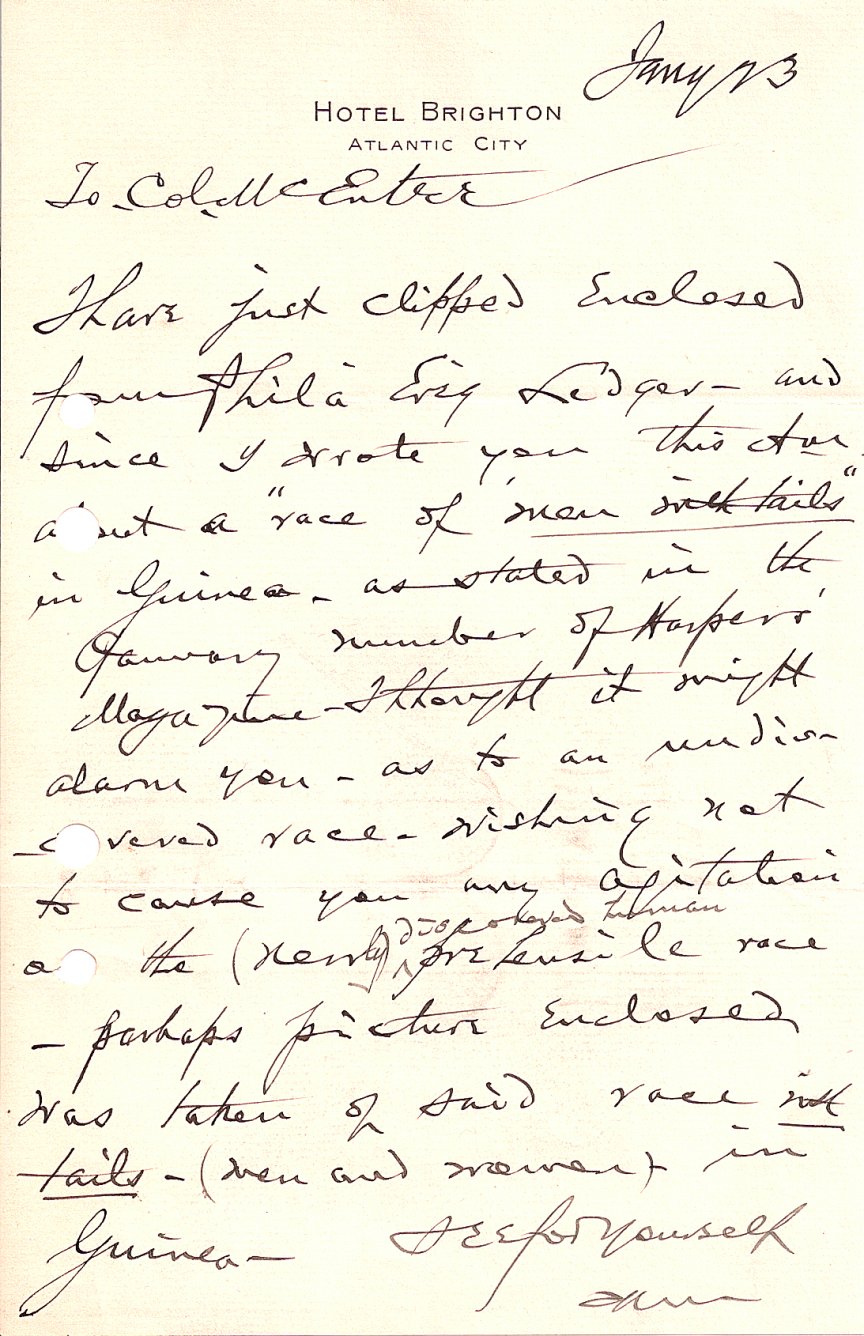 Jany 23
HOTEL BRIGHTON
ATLANTIC CITY
To Col. McEntee
I have just clipped Enclosed
from Phila Ev'g Ledger - and
since I wrote you this
about a "race of men with tails"
in Guinea - as stated in the
January number of Harper's
Magazine - I thought it might
alarm you - as to an undis-
-covered race - wishing not
to cause you any agitation
as the (newly) discovered human
prehensile race
- perhaps picture Enclosed
was taken of said race with
tails - (men and women) - in
Guinea - See for Yourself